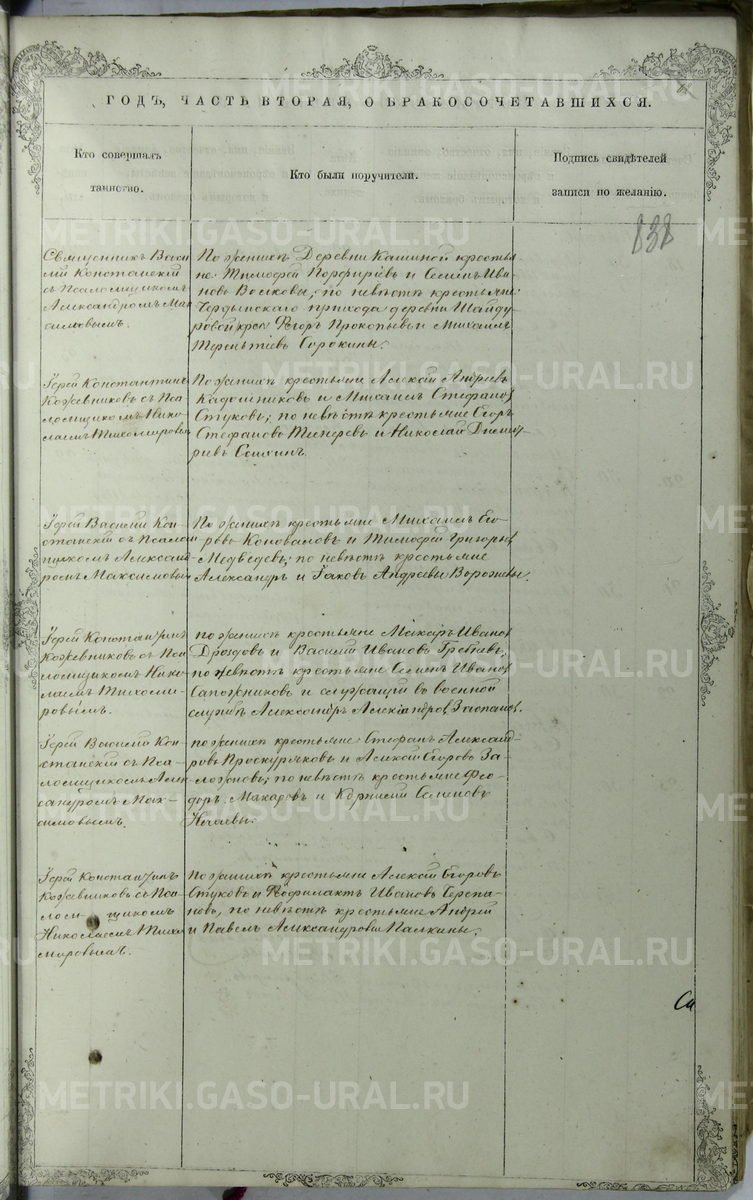 ГОДЪ, ЧАСТЬ ВТОРАЯ, О БРАКОСОЧЕТАВШИХСЯ.
Кто совершалъ
таинство.
Кто были поручители.
Подпись свидѣтелей
записи по желанію.
838
Священникъ Васи
лій Констанскій
съ Псаломщикомъ
Александромъ Мак
симовымъ.
По женихѣ Деревни Кашиной крестья
не: Тимофей Порфирьевъ и Семенъ Ива
новъ Волковы; по невѣстѣ крестьяне
прихода деревни Шайду
ровой Егоръ Прокопьевъ и Михаилъ
Терентьевъ Сорокины.
Іерей Константинъ
Кожевниковъ съ Пса
ломщикомъ Нико
лаемъ Тихомировымъ
По женихѣ крестьяне Алексѣй Андреевъ
Кадошниковъ и Михаилъ Стефановъ
Стуковъ; по невѣстѣ крестьяне Егоръ
Стефановъ и Николай Дмит
ріевъ
Іерей Василій Кон
станскій съ Псалом
щикомъ Александ
ромъ Максимовымъ
По женихѣ крестьяне Михаилъ Его
ровъ Коноваловъ и Тимофей Григорьевъ
Медведевъ; по невѣстѣ крестьяне
Александръ и Іаковъ Андреевы
Іерей Константинъ
Кожевниковъ съ Пса
ломщикомъ Нико
лаемъ Тихоми
ровымъ.
по женихѣ крестьяне Макаръ Ивановъ
Дроздовъ и Василій Ивановъ
по невѣстѣ крестьяне Семенъ Ивановъ
Сапожниковъ и служащій въ военной
службѣ Александръ Александровъ
Іерей Василій Кон
станскій съ Пса
ломщикомъ Алек
сандромъ Мак
симовымъ.
по женихѣ крестьяне: Стефанъ Александ
ровъ Проскуряковъ и Алексѣй Егоровъ За
ложновъ; по невѣстѣ крестьяне Фео
доръ Макаровъ и Корнилій Семеновъ
Нечаевы.
Іерей Константинъ
Кожевниковъ съ Пса
ломщикомъ
Николаемъ Тихо
мировымъ.
По женихѣ крестьяне Алексѣй Егоровъ
Стуковъ и Феофилактъ Ивановъ Черепа
новъ, по невѣстѣ крестьяне Андрей
и Павелъ Александровы Палкины.
METRIKI.GASO-URAL.RU